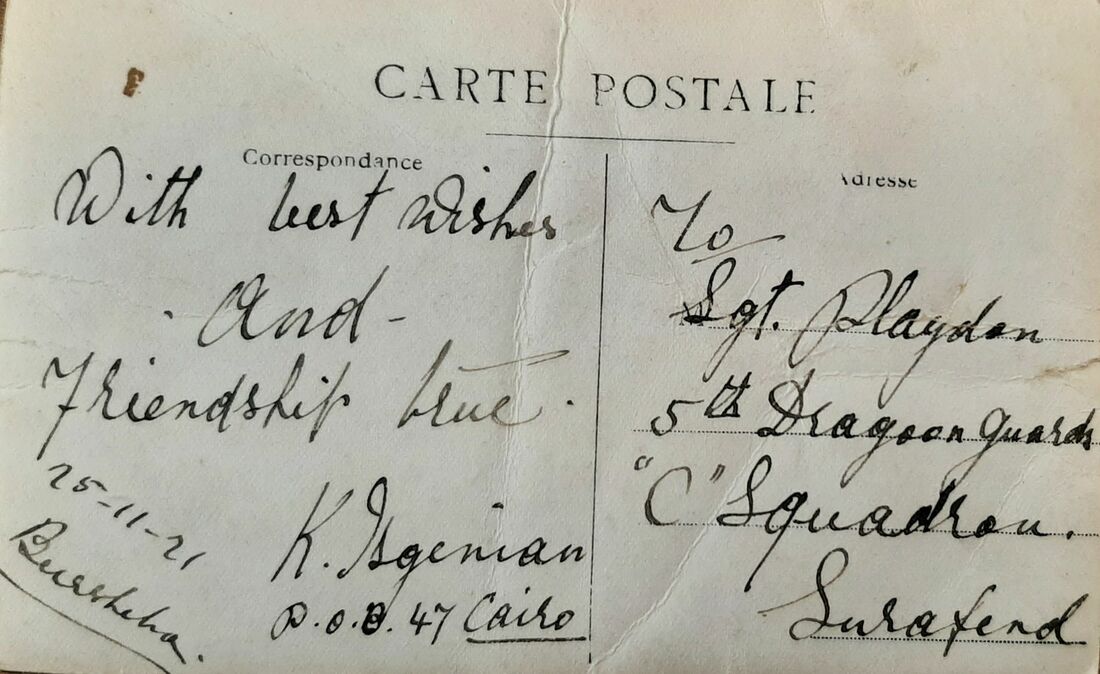 CARTE POSTALE
Correspondance
With best wishes
And -
Friendship true.
25-11-21
Bursheba.
K. Isgenian
P.O.B. 47 Cairo
Adresse
To
Sgt. Playdon
5th Dragoon Guards
"C" Squadron.
Surafend